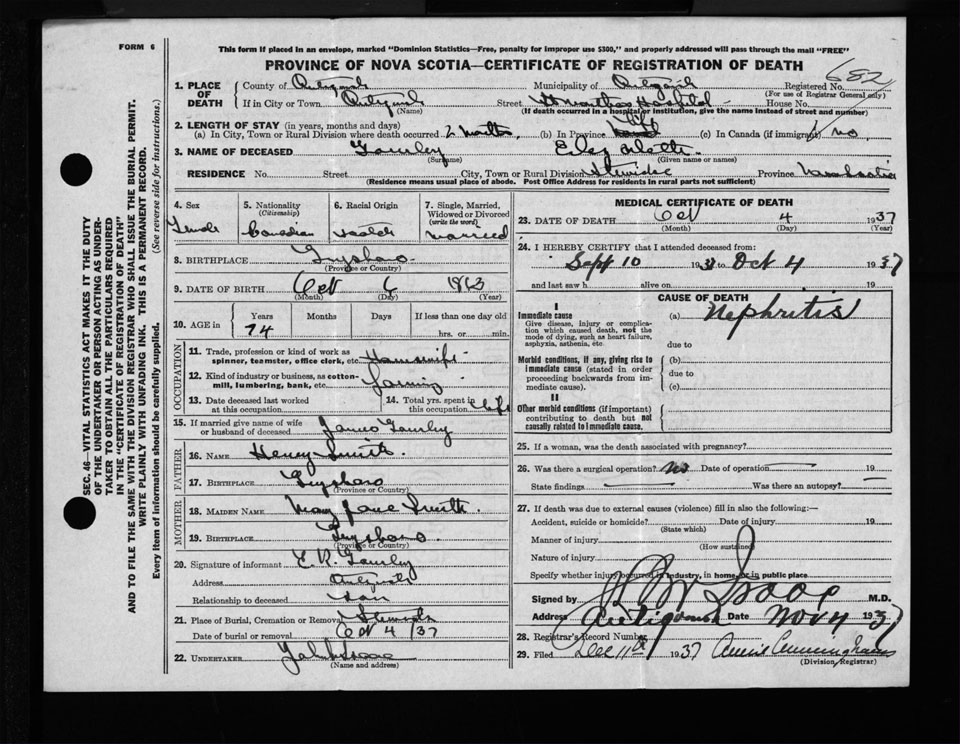 FORM 6
This form if placed in an envelope, marked "Dominion Statistics—Free, penalty for improper use $300," and properly addressed will pass through the mail "FREE"
PROVINCE OF NOVA SCOTIA—CERTIFICATE OF REGISTRATION OF DEATH
682
1. PLACE OF DEATH
County of
Municipality of
Registered No.
(For use of Registrar General only)
If in City or Town
(Name)
Street Hospital House No.
(If death occurred in a hospital or institution, give the name instead of street and number)
2. LENGTH OF STAY (in years, months and days)
(a) In City, Town or Rural Division where death occurred 2 months (b) In Province Life (c) In Canada (if immigrant) no
3. NAME OF DECEASED
(Surname) (Given name or names)
RESIDENCE No. Street City, Town or Rural Division Province Nova Scotia
(Residence means usual place of abode. Post Office Address for residents in rural parts not sufficient)
4. Sex Female
5. Nationality (Citizenship) Canadian
6. Racial Origin
7. Single, Married, Widowed or Divorced (write the word) married
8. BIRTHPLACE Guysboro
(Province or Country)
9. DATE OF BIRTH Oct 6 1863
(Month) (Day) (Year)
10. AGE in Years Months Days If less than one day old
74 hrs. or min.
OCCUPATION
11. Trade, profession or kind of work as spinner, teamster, office clerk, etc. Housewife
12. Kind of industry or business, as cotton-mill, lumbering, bank, etc. farming
13. Date deceased last worked at this occupation
14. Total yrs. spent in this occupation life
15. If married give name of wife or husband of deceased James
FATHER
16. NAME Henry Smith
17. BIRTHPLACE Guysboro
(Province or Country)
MOTHER
18. MAIDEN NAME Mary Jane Smith
19. BIRTHPLACE Guysboro
(Province or Country)
20. Signature of informant E. R.
Address
Relationship to deceased son
21. Place of Burial, Cremation or Removal
Date of burial or removal Oct 4 /37
22. UNDERTAKER
(Name and address)
MEDICAL CERTIFICATE OF DEATH
23. DATE OF DEATH Oct 4 1937
(Month) (Day) (Year)
24. I HEREBY CERTIFY that I attended deceased from:
Sept 10 1937 to Oct 4 1937
and last saw h alive on 19
CAUSE OF DEATH
I
Immediate cause
Give disease, injury or complication which caused death, not the mode of dying, such as heart failure, asphyxia, asthenia, etc.
(a) Nephritis
due to
Morbid conditions, if any, giving rise to immediate cause (stated in order proceeding backwards from immediate cause).
(b)
due to
(c)
II
Other morbid conditions (if important) contributing to death but not causally related to immediate cause.
25. If a woman, was the death associated with pregnancy?
26. Was there a surgical operation? no Date of operation 19
State findings Was there an autopsy?
27. If death was due to external causes (violence) fill in also the following:—
Accident, suicide or homicide? Date of injury 19
(State which)
Manner of injury
(How sustained)
Nature of injury
Specify whether injury occurred in industry, in home, or in public place
Signed by M.D.
Address Antigonish Date Nov 4 1937
28. Registrar's Record Number
29. Filed Dec 11th 1937 Annie Cunningham
(Division Registrar)
SEC. 46—VITAL STATISTICS ACT MAKES IT THE DUTY
OF THE UNDERTAKER OR PERSON ACTING AS UNDER-
TAKER TO OBTAIN ALL THE PARTICULARS REQUIRED
IN THE "CERTIFICATE OF REGISTRATION OF DEATH"
AND TO FILE THE SAME WITH THE DIVISION REGISTRAR WHO SHALL ISSUE THE BURIAL PERMIT.
WRITE PLAINLY WITH UNFADING INK. THIS IS A PERMANENT RECORD.
Every item of information should be carefully supplied. (See reverse side for instructions.)